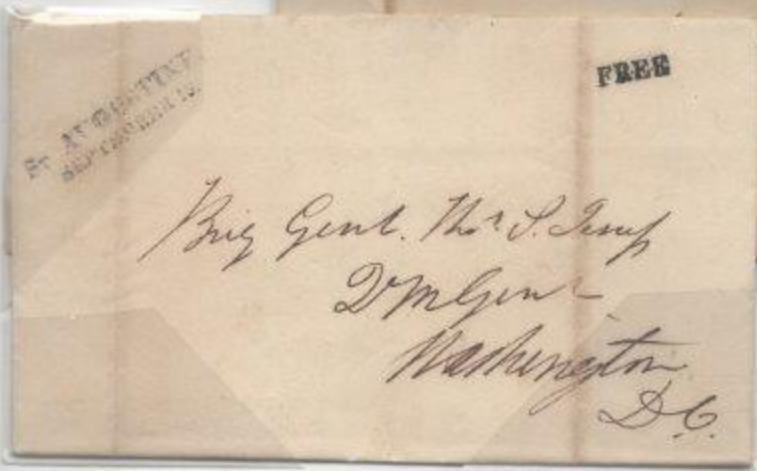 St. AUGUSTINE
SEPTEMBER 19.
FREE
Brig Genl. Thos S. Jesup
QMGenl
Washington
D.C.